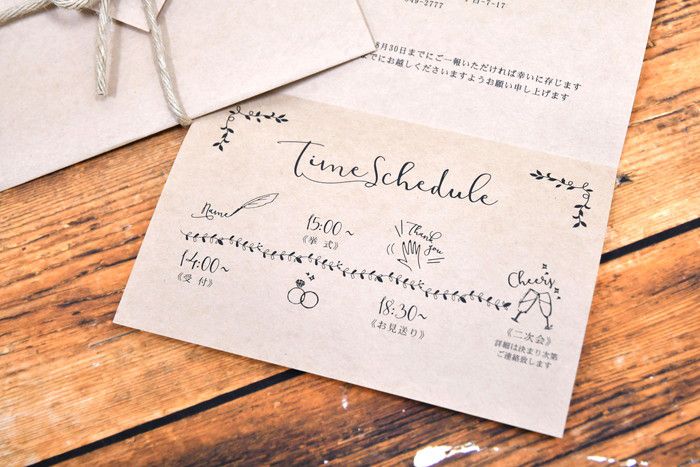 049-2777
7-17
8月30日までにご一報いただければ幸いに存じます
までにお越しくださいますようお願い申し上げます
Time Schedule
Name
15:00~
《挙式》
Thank you
14:00~
《受付》
18:30~
《お見送り》
Cheers
《二次会》
詳細は決まり次第
ご連絡致します